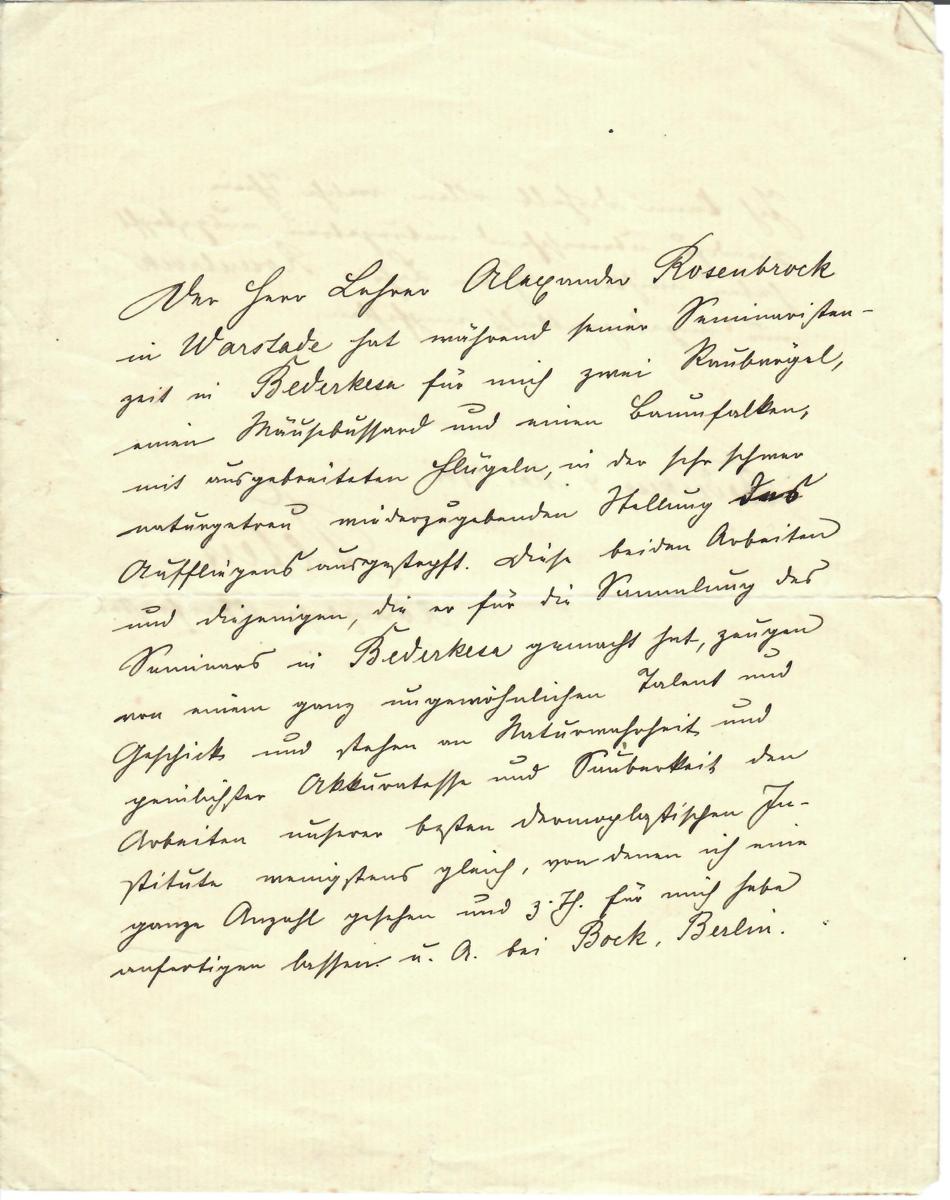 Der Herr Lehrer Alexander Rosenbrock
in Warstade hat während seiner Seminaristen-
zeit in Bederkesa für mich zwei Raubvögel,
einen Mäusebussard und einen Baumfalken,
mit ausgebreiteten Flügeln, in der sehr schwer
naturgetreu wiederzugebenden Stellung des
Auffliegens ausgestopft. Diese beiden Arbeiten
und diejenigen, die er für die Sammlung des
Seminars in Bederkesa gemacht hat, zeugen
von einem ganz ungewöhnlichen Talent und
Geschick und stehen an Naturwahrheit und
peinlichster Akkuratesse und Sauberkeit den
Arbeiten unserer besten dermoplastischen In-
stitute wenigstens gleich, von denen ich eine
ganze Anzahl gesehen und z. Th. für mich habe
anfertigen lassen u. A. bei Bock, Berlin.